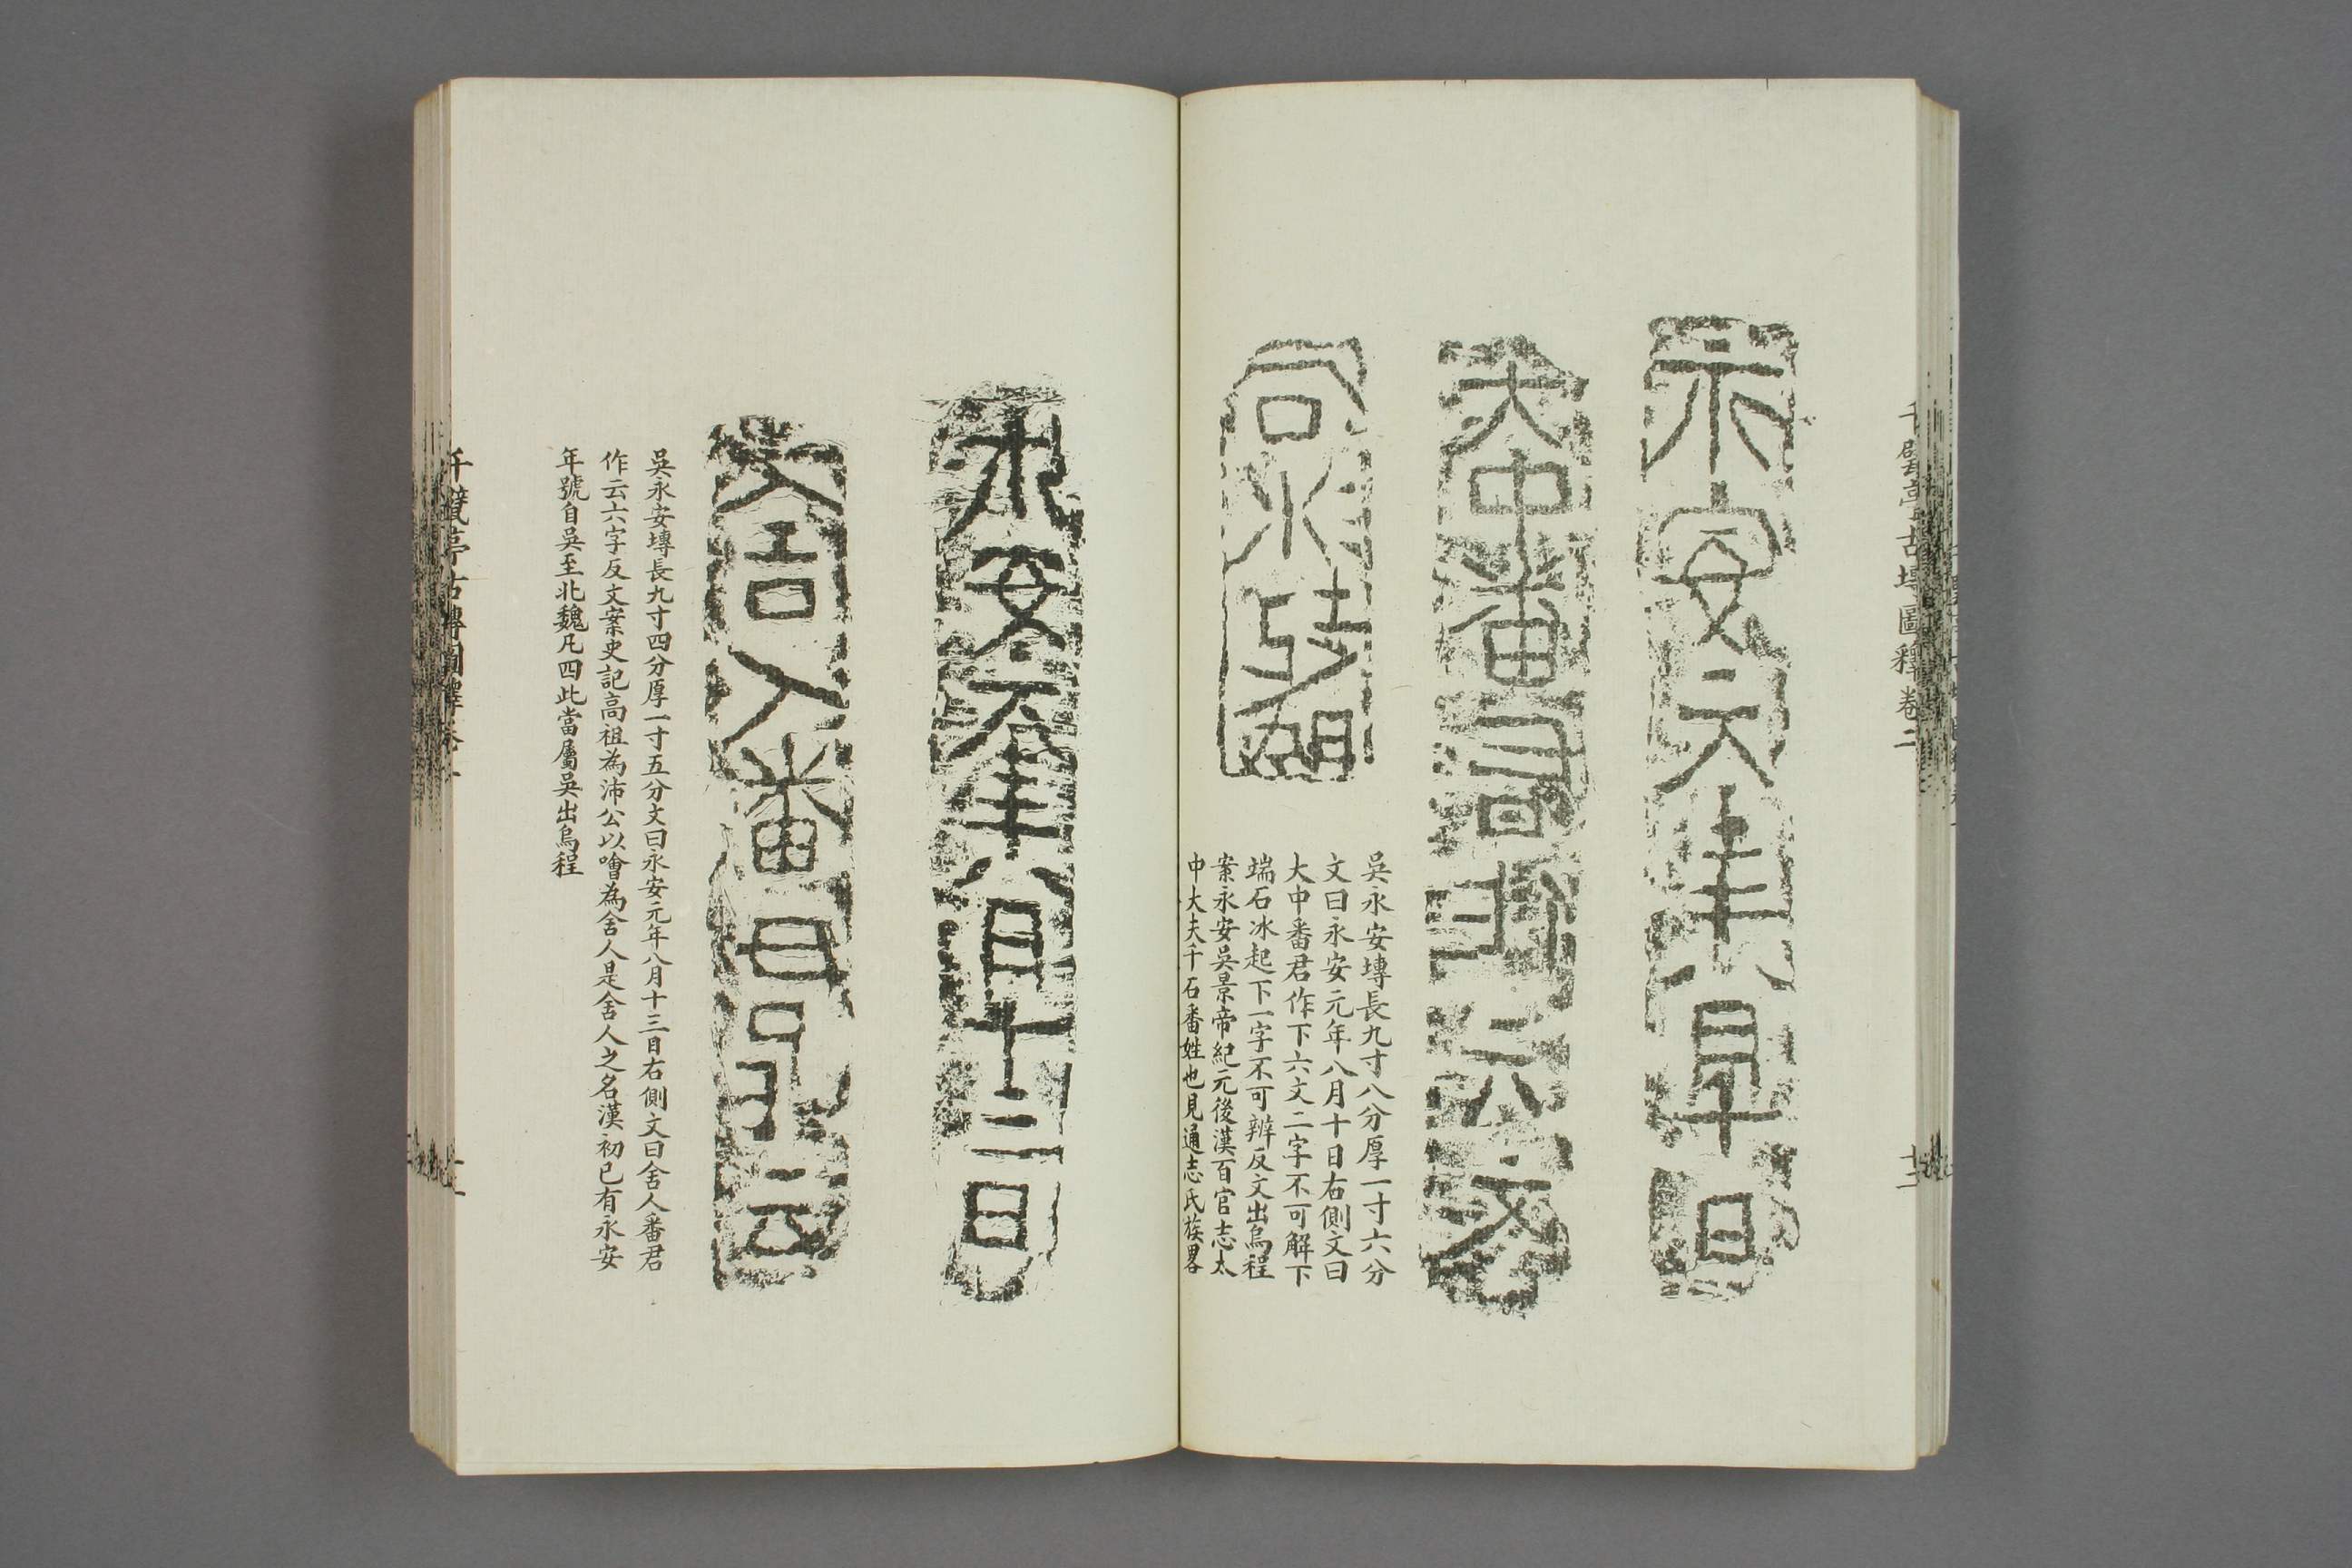 千甓亭古塼圖釋卷二
十二
永安元年八月十日
大中番君作下六文
石冰起
吳永安塼長九寸八分厚一寸六分
文曰永安元年八月十日右側文曰
大中番君作下六文二字不可解下
端石冰起下一字不可辨反文出烏程
案永安吳景帝紀元後漢百官志太
中大夫千石番姓也見通志氏族畧
永安元年八月十三日
舍人番君作云
吳永安塼長九寸四分厚一寸五分文曰永安元年八月十三日右側文曰舍人番君
作云六字反文案史記高祖為沛公以噲為舍人是舍人之名漢初已有永安
年號自吳至北魏凡四此當屬吳出烏程
千甓亭古塼圖釋卷